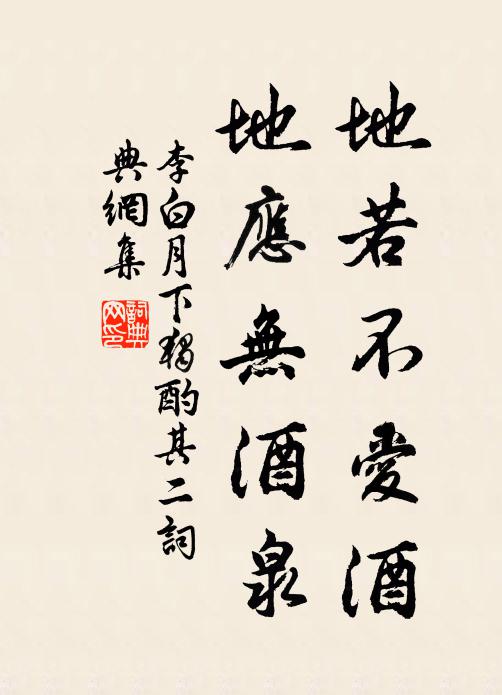 地若不愛酒
地應無酒泉
李白月下獨酌其二詞
典網集
詞典
网印